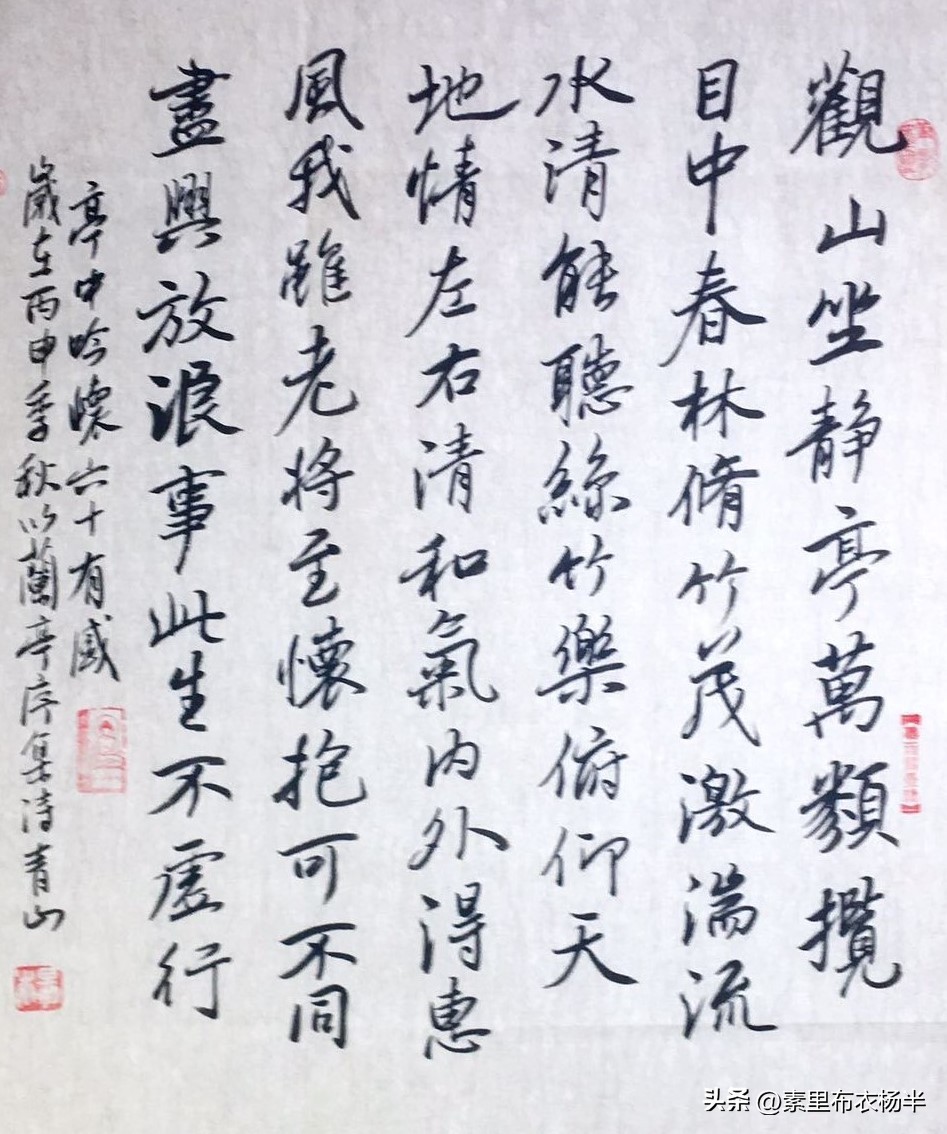 觀山坐靜亭萬類攬
目中春林脩竹茂激湍流
水清能聽絲竹樂俯仰天
地情左右清和氣內外得惠
風我雖老將至懷抱可不同
盡興放浪事此生不虛行
亭中吟懷六十有感
歲在丙申季秋以蘭亭序集詩青山
头条 @素里布衣杨半